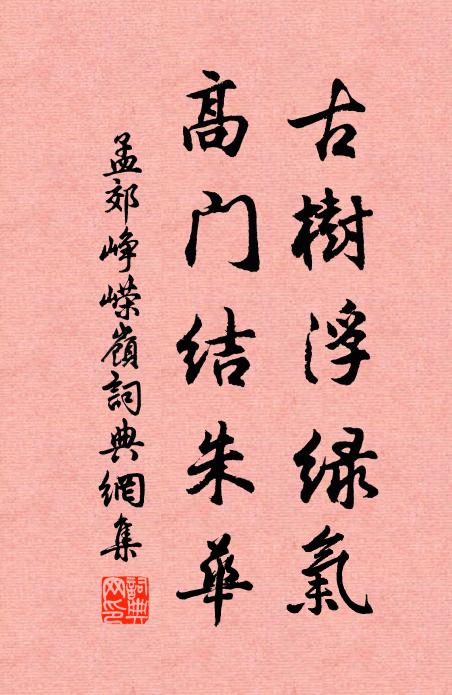 古樹浮绿氣
高门结朱華
孟郊峥嶸嶺詞典網集
詞典网印